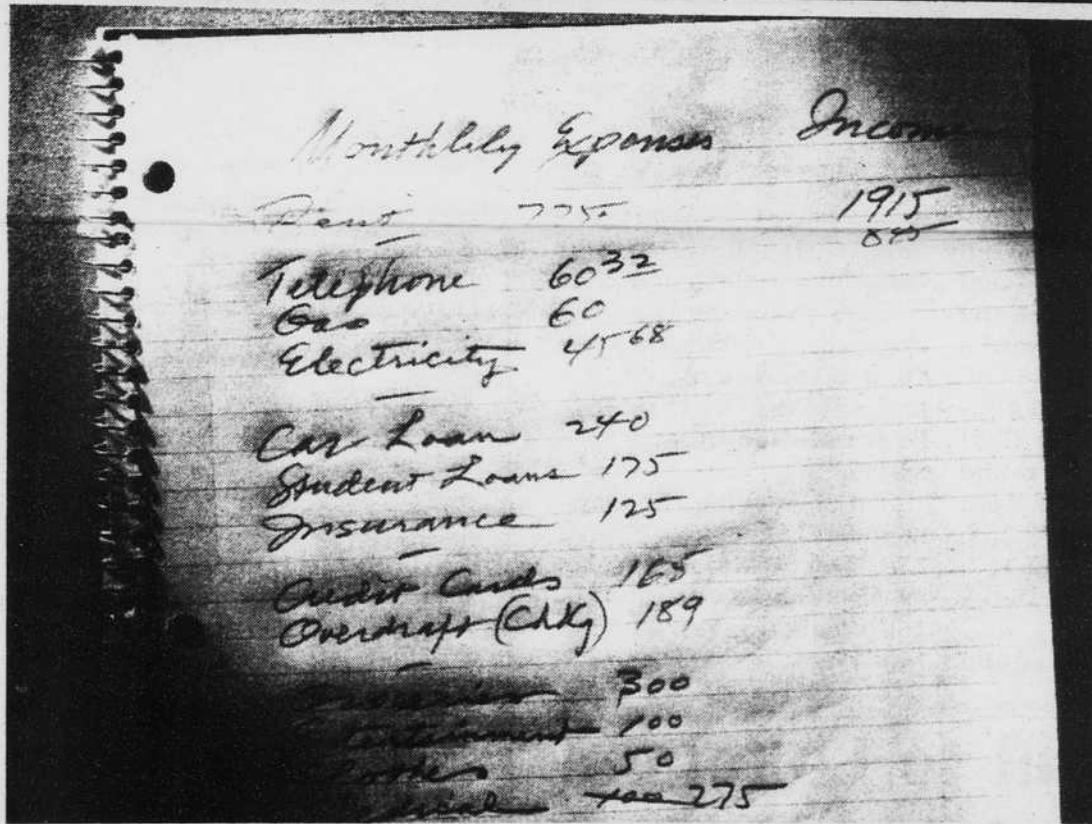 Monthlyly Expenses Income
Rent 775 1915
845
Telephone 60 32
Gas 60
Electricity 45 68
Car Loan 240
Student Loans 175
Insurance 125
Credit Cards 165
Overdraft (Chkg) 189
300
100
50
275